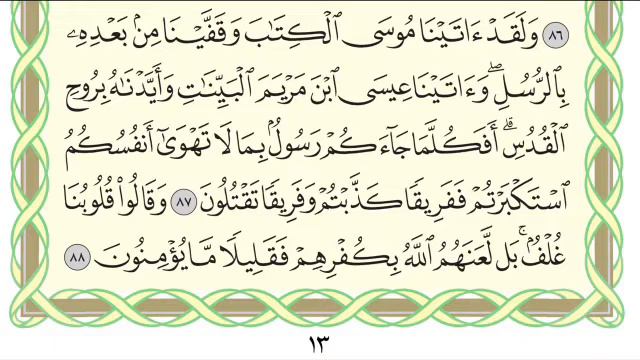 ٨٦ وَلَقَدْ ءَاتَيْنَا مُوسَى ٱلْكِتَٰبَ وَقَفَّيْنَا مِنۢ بَعْدِهِۦ
بِٱلرُّسُلِ ۖ وَءَاتَيْنَا عِيسَى ٱبْنَ مَرْيَمَ ٱلْبَيِّنَٰتِ وَأَيَّدْنَٰهُ بِرُوحِ
ٱلْقُدُسِ ۗ أَفَكُلَّمَا جَآءَكُمْ رَسُولٌۢ بِمَا لَا تَهْوَىٰٓ أَنفُسُكُمُ
ٱسْتَكْبَرْتُمْ فَفَرِيقًا كَذَّبْتُمْ وَفَرِيقًا تَقْتُلُونَ ٨٧ وَقَالُوا۟ قُلُوبُنَا
غُلْفٌۢ ۚ بَل لَّعَنَهُمُ ٱللَّهُ بِكُفْرِهِمْ فَقَلِيلًا مَّا يُؤْمِنُونَ ٨٨
١٣